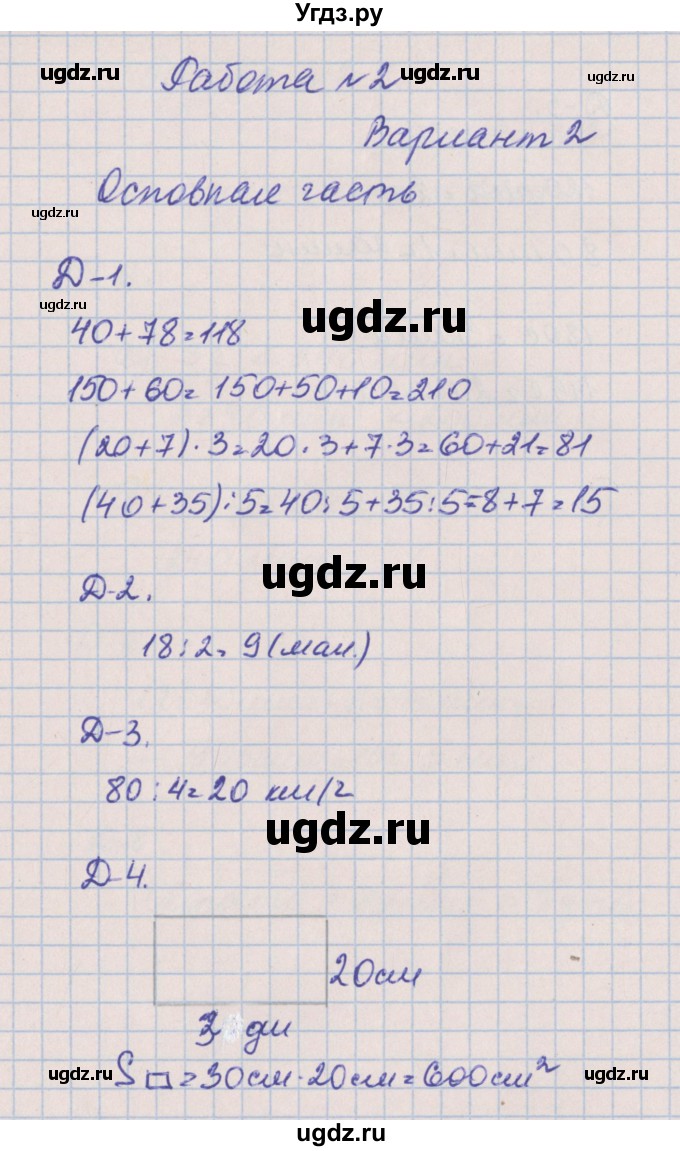 Угдз.ру
ugdz.ru ugdz.ru ugdz.ru
Работа №2
Вариант 2
Основная часть
ugdz.ru
Д-1.
ugdz.ru
40+78=118
ugdz.ru
150+60=150+50+10=210
(20+7)·3=20·3+7·3=60+21=81
(40+35):5=40:5+35:5=8+7=15
ugdz.ru
Д-2.
18:2=9(мал.)
Д-3.
80:4=20 км/ч
ugdz.ru
Д-4.
20см
3 дм
S▭=30см·20см=600см²
ugdz.ru ugdz.ru
ugdz.ru